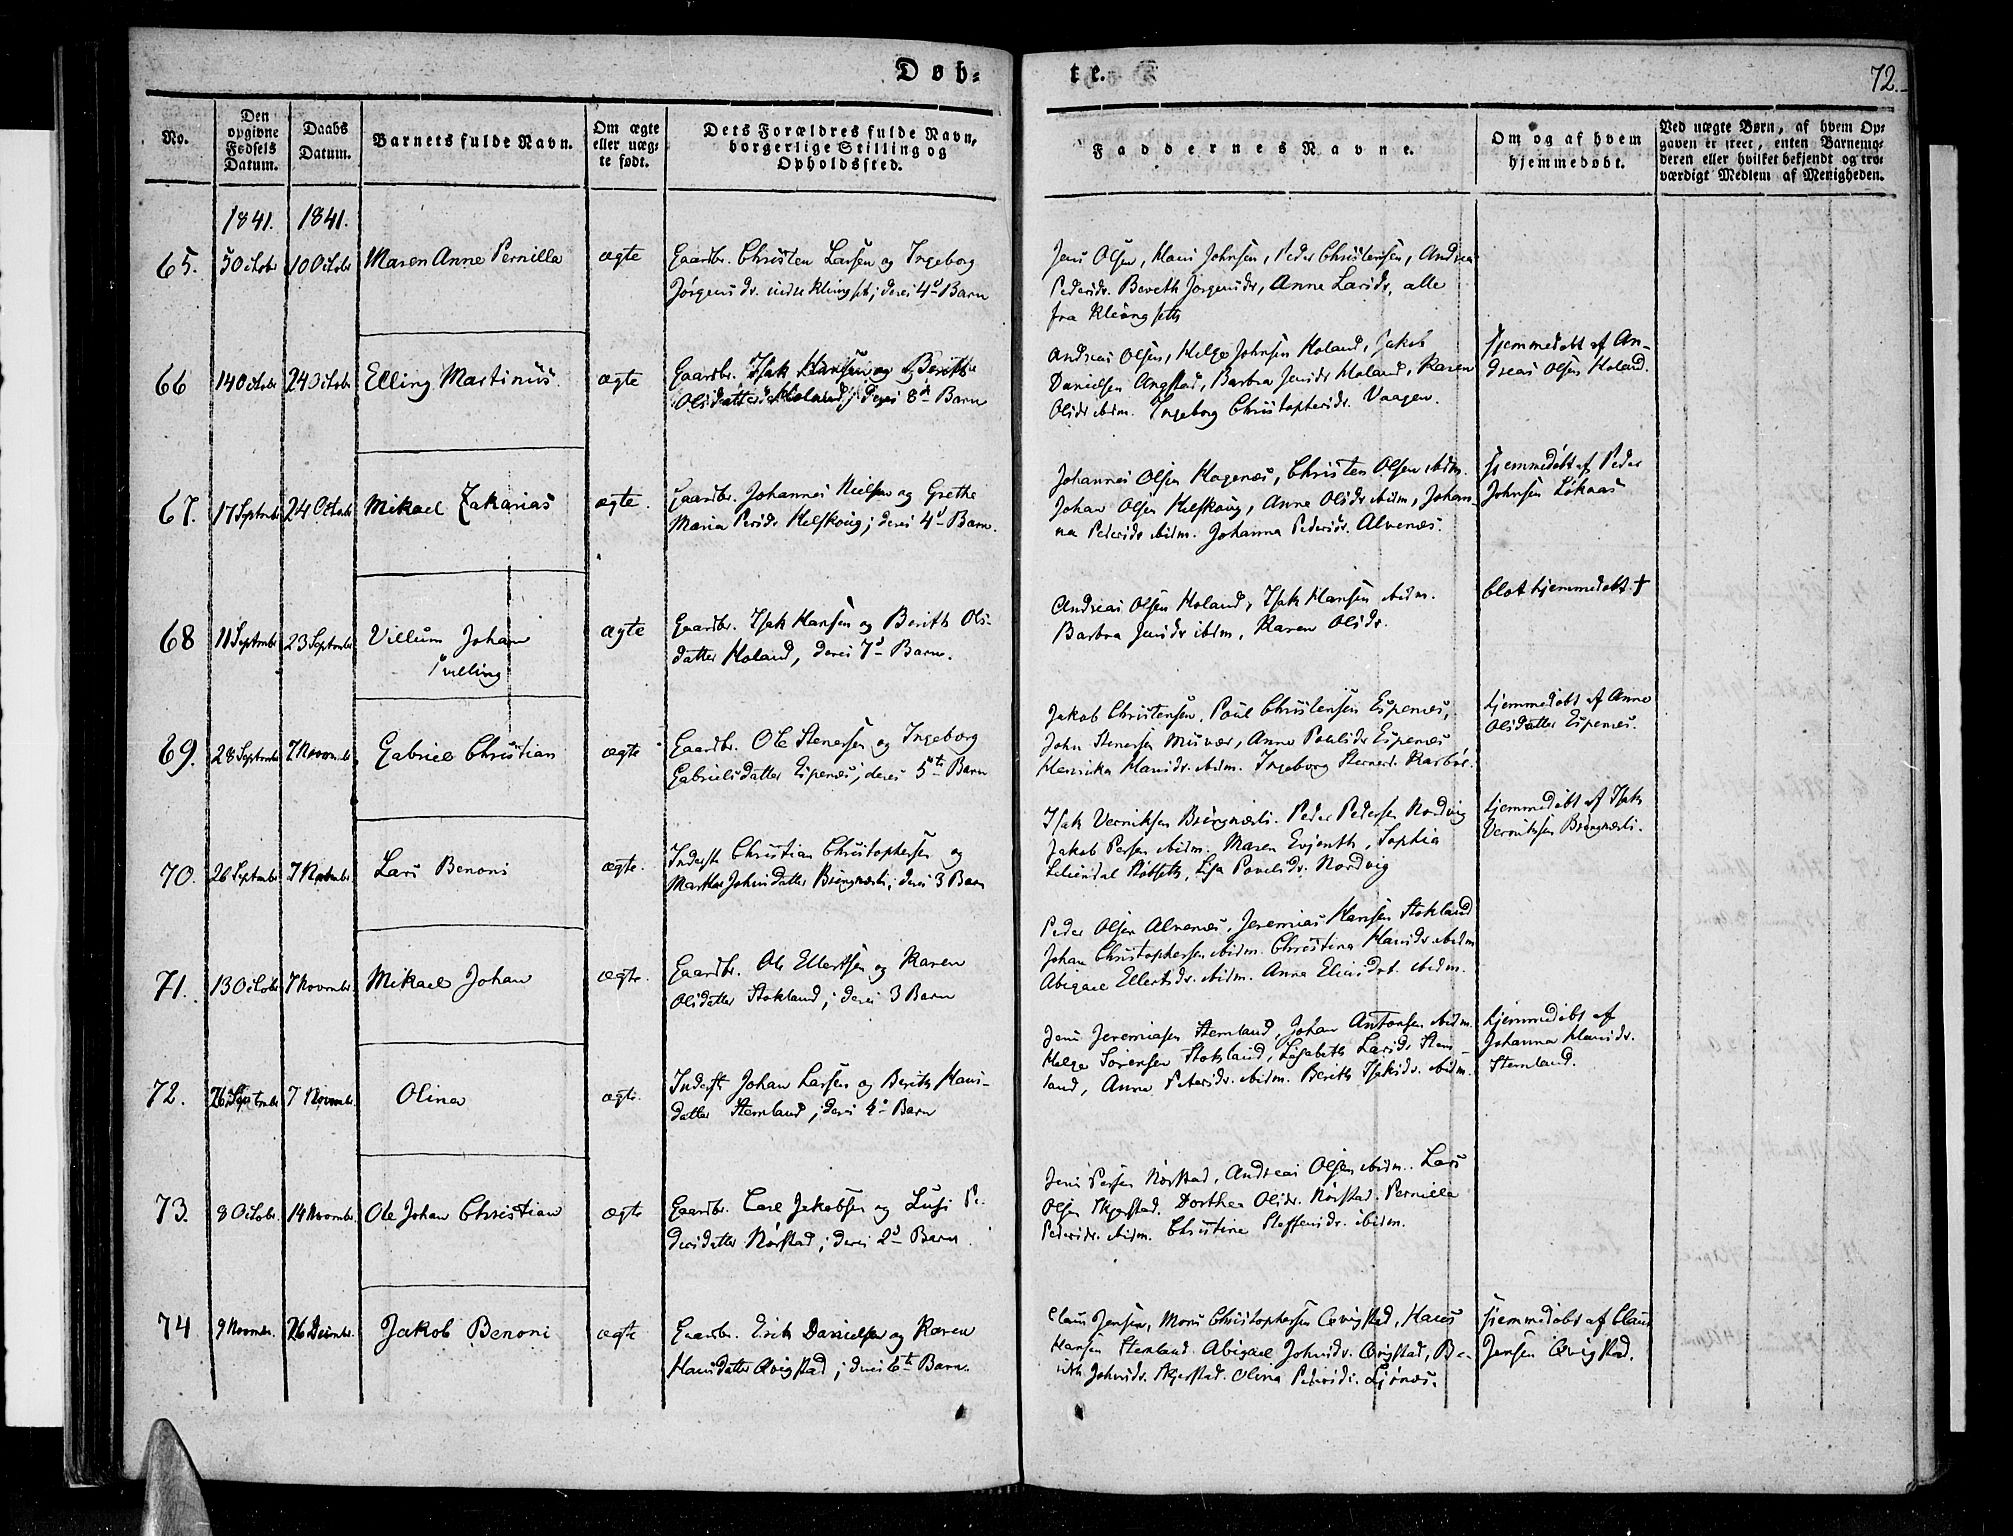 Døb-
te.
72.
No.
Den opgivne Fødsels Datum.
Daabs Datum.
Barnets fulde Navn.
Om ægte eller uægte født.
Dets Forældres fulde Navn, borgerlige Stilling og Opholdssted.
Faddernes Navne.
Om og af hvem hjemmedøbt.
Ved uægte Børn, af hvem Opgaven er skeet, enten Barnemoderen eller hvilket bekjendt og troværdigt Medlem af Menigheden.
1841. 1841.
65. 5 October 10 October Maren Anne Pernilla ægte
Gaardbr. Christen Larsen og Ingeborg
Jørgensdr. deres 4d Barn
Jens Olsen, Hans Johnsen, Peder Christensen, Andrea
Pedersdr. Bereth Jørgensdr, Anne Larsdr, alle
fra Klæingseth
66 14 October 24 October Elling Martinus. ægte
Gaardbr. Isak Hansen og Berith
Olsdatter Holand; deres 8d Barn
Andreas Olsen, Helge Johnsen Holand, Jakob
Danielsen Angstad, Barbra Jensdr Holand, Karen
Olsdr ibidm. Ingeborg Christophersdr. Vaagen.
Hjemmedøbt af An-
dreas Olsen Holand.
67. 17 September 24 October Mikael Zakarias ægte.
Gaardbr. Johannes Nielsen og Grethe
Maria Persdr Helskoug; deres 4d Barn.
Johannes Olsen Hagenæs, Christen Olsen ibidm.
Johan Olsen Helskoug, Anne Olsdr ibidm, Johan-
na Pedersdr ibidm. Johanna Pedersdr. Alvenæs.
Hjemmedøbt af Peder
Johnsen Løkaas
68 11 September 23 September Villum Johan ægte
Tvilling
Gaardbr. Isak Hansen og Berith Ols-
datter Holand, deres 7d Barn.
Andreas Olsen Holand, Isak Hansen ibidm.
Barbra Jensdr ibidm, Karen Olsdr.
blot hjemmedøbt †
69. 28 September 7 November Gabriel Christian ægte
Gaardbr. Ole Stenersen og Ingeborg
Gabrielsdatter Espenæs; deres 5te Barn
Jakob Christensen, Poul Christensen Espenæs,
John Stenersen Musvær, Anne Poulsdr Espenæs
Henrika Hansdr. ibidm. Ingeborg Stenersd. Karbøl.
hjemmedøbt af Anne
Olsdatter Espenæs.
70. 26 September 7 November Lars Benoni ægte.
Inderst Christian Christophersen og
Martha Johnsdatter Bringnæsli; deres 3 Barn
Isak Verniksen Bringnæsli. Peder Pedersen Nordvig
Jakob Persen ibidm. Maren Evjenth, Sophia
Liliendal Røbseth, Lisa Povelsdr. Nordvig
hjemmedøbt af Isak
Verniksen Bringnæsli.
71. 13 October 7 November Mikael Johan ægte.
Gaardbr. Ole Ellertsen og Karen
Olsdatter Stokland; deres 3 Barn
Peder Olsen Alvenæs, Jeremias Hansen Stokland
Johan Christophersen ibidm. Christina Hansdr ibidm
Abigael Ellertsdr. ibidm. Anna Eliasdr. ibidm.
72. 26 September 7 November Olina ægte.
Inderst Johan Larsen og Berith Hans-
datter Stemland; deres 4d Barn
Jens Jeremiasen Stemland, Johan Antonsen ibidm.
Helge Sørensen Stokland, Lisabeth Larsdr Stem-
land, Anne Petersdr. ibidm. Berith Isaksdr. ibidm.
hjemmedøbt af
Johanna Hansdr.
Stemland.
73. 8 October 14 November Ole Johan Christian ægte
Gaardbr. Carl Jakobsen og Lusi Pe-
dersdatter Nørstad; deres 2d Barn.
Jens Persen Nørstad, Andreas Olsen ibidm. Lars
Olsen Skjerstad. Dorthea Olsdr. Nørstad. Pernilla
Pedersdr. ibidm. Christine Steffensdr. ibidm.
74 9 November. 26 December. Jakob Benoni ægte
Gaardbr. Erik Danielsen og Karen
Hansdatter Qvigstad; deres 6te Barn.
Claus Jensen, Mons Christophersen Qvigstad, Hans
Hansen Stemland. Abigael Johnsdr. Qvigstad, Be-
rith Johnsdr. Skjerstad. Olina Pedersdr.
Hjemmedøbt af Claus
Jensen Qvigstad.